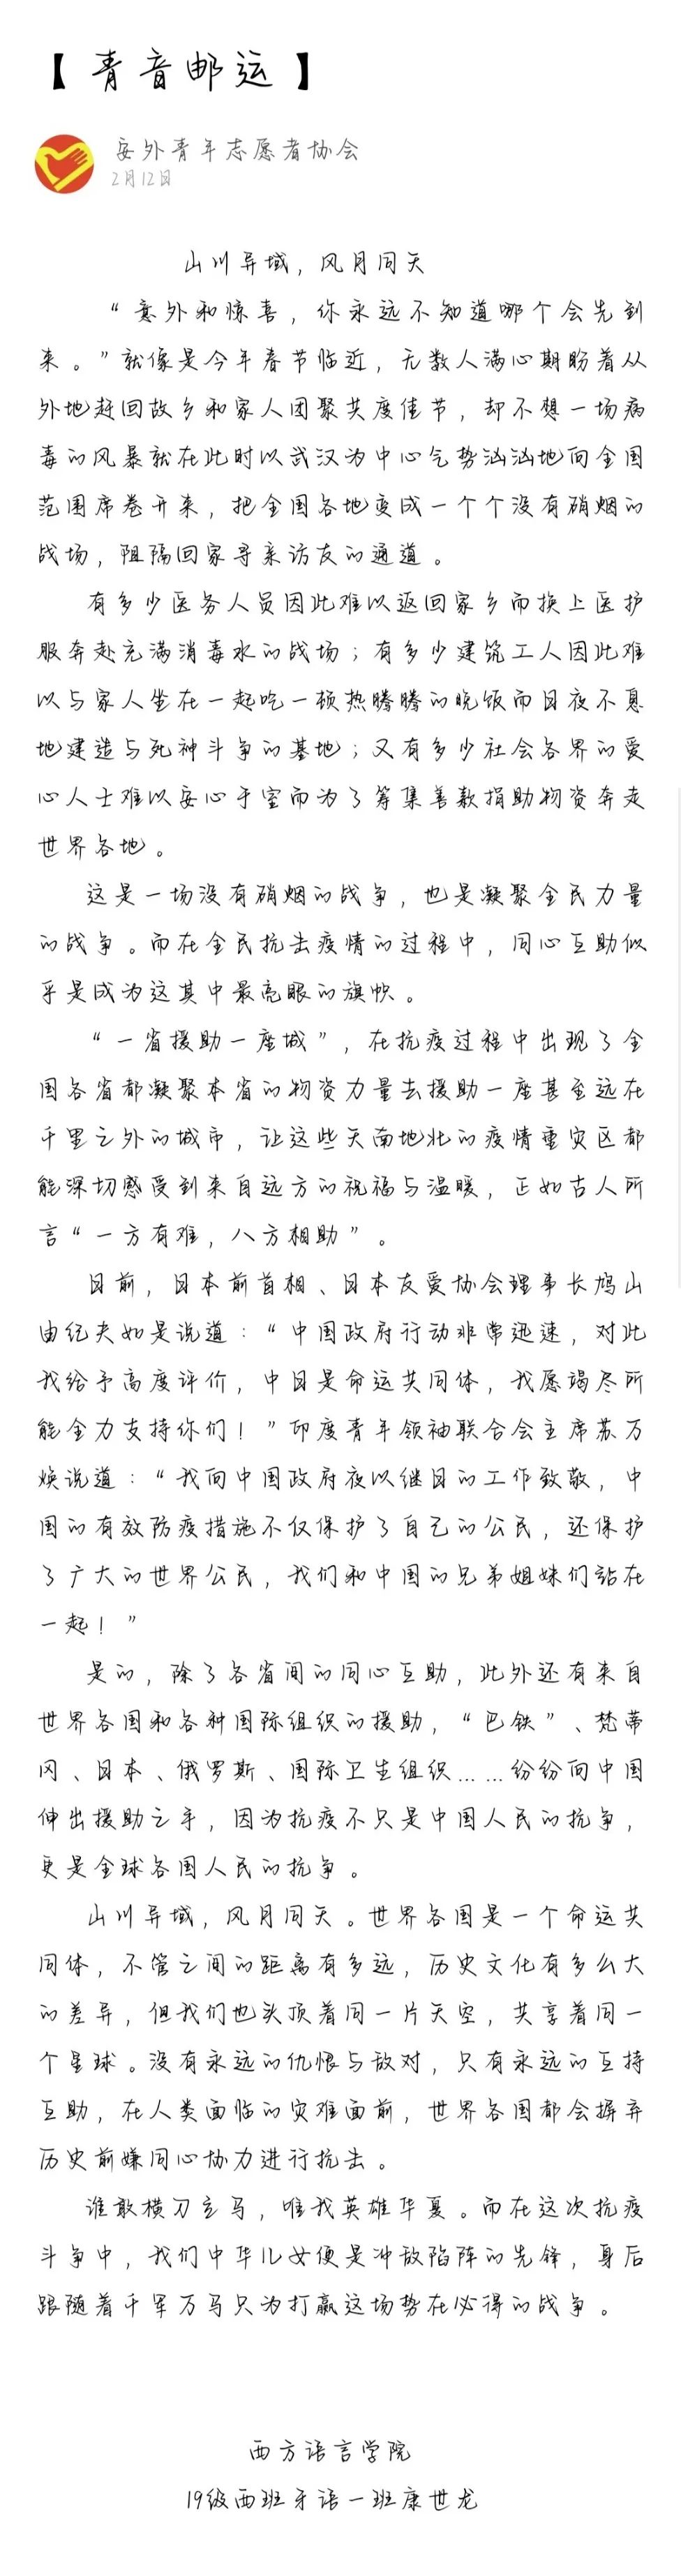 【青音邮运】
安外青年志愿者协会
2月12日
山川异域，风月同天
“意外和惊喜，你永远不知道哪个会先到
来。”就像是今年春节临近，无数人满心期盼着从
外地赶回故乡和家人团聚共度佳节，却不想一场病
毒的风暴就在此时以武汉为中心气势汹汹地向全国
范围席卷开来，把全国各地变成一个个没有硝烟的
战场，阻隔回家寻亲访友的通道。
有多少医务人员因此难以返回家乡而换上医护
服奔赴充满消毒水的战场；有多少建筑工人因此难
以与家人坐在一起吃一顿热腾腾的晚饭而日夜不息
地建造与死神斗争的基地；又有多少社会各界的爱
心人士难以安心于室而为了筹集善款捐助物资奔走
世界各地。
这是一场没有硝烟的战争，也是凝聚全民力量
的战争。而在全民抗击疫情的过程中，同心互助似
乎是成为这其中最亮眼的旗帜。
“一省援助一座城”，在抗疫过程中出现了全
国各省都凝聚本省的物资力量去援助一座甚至远在
千里之外的城市，让这些天南地北的疫情重灾区都
能深切感受到来自远方的祝福与温暖，正如古人所
言“一方有难，八方相助”。
日前，日本前首相、日本友爱协会理事长鸠山
由纪夫如是说道：“中国政府行动非常迅速，对此
我给予高度评价，中日是命运共同体，我愿竭尽所
能全力支持你们！”印度青年领袖联合会主席苏万
焕说道：“我向中国政府夜以继日的工作致敬，中
国的有效防疫措施不仅保护了自己的公民，还保护
了广大的世界公民，我们和中国的兄弟姐妹们站在
一起！”
是的，除了各省间的同心互助，此外还有来自
世界各国和各种国际组织的援助，“巴铁”、梵蒂
冈、日本、俄罗斯、国际卫生组织……纷纷向中国
伸出援助之手，因为抗疫不只是中国人民的抗争，
更是全球各国人民的抗争。
山川异域，风月同天。世界各国是一个命运共
同体，不管之间的距离有多远，历史文化有多么大
的差异，但我们也头顶着同一片天空，共享着同一
个星球。没有永远的仇恨与敌对，只有永远的互持
互助，在人类面临的灾难面前，世界各国都会摒弃
历史前嫌同心协力进行抗击。
谁敢横刀立马，唯我英雄华夏。而在这次抗疫
斗争中，我们中华儿女便是冲敌陷阵的先锋，身后
跟随着千军万马只为打赢这场势在必得的战争。
西方语言学院
19级西班牙语一班康世龙